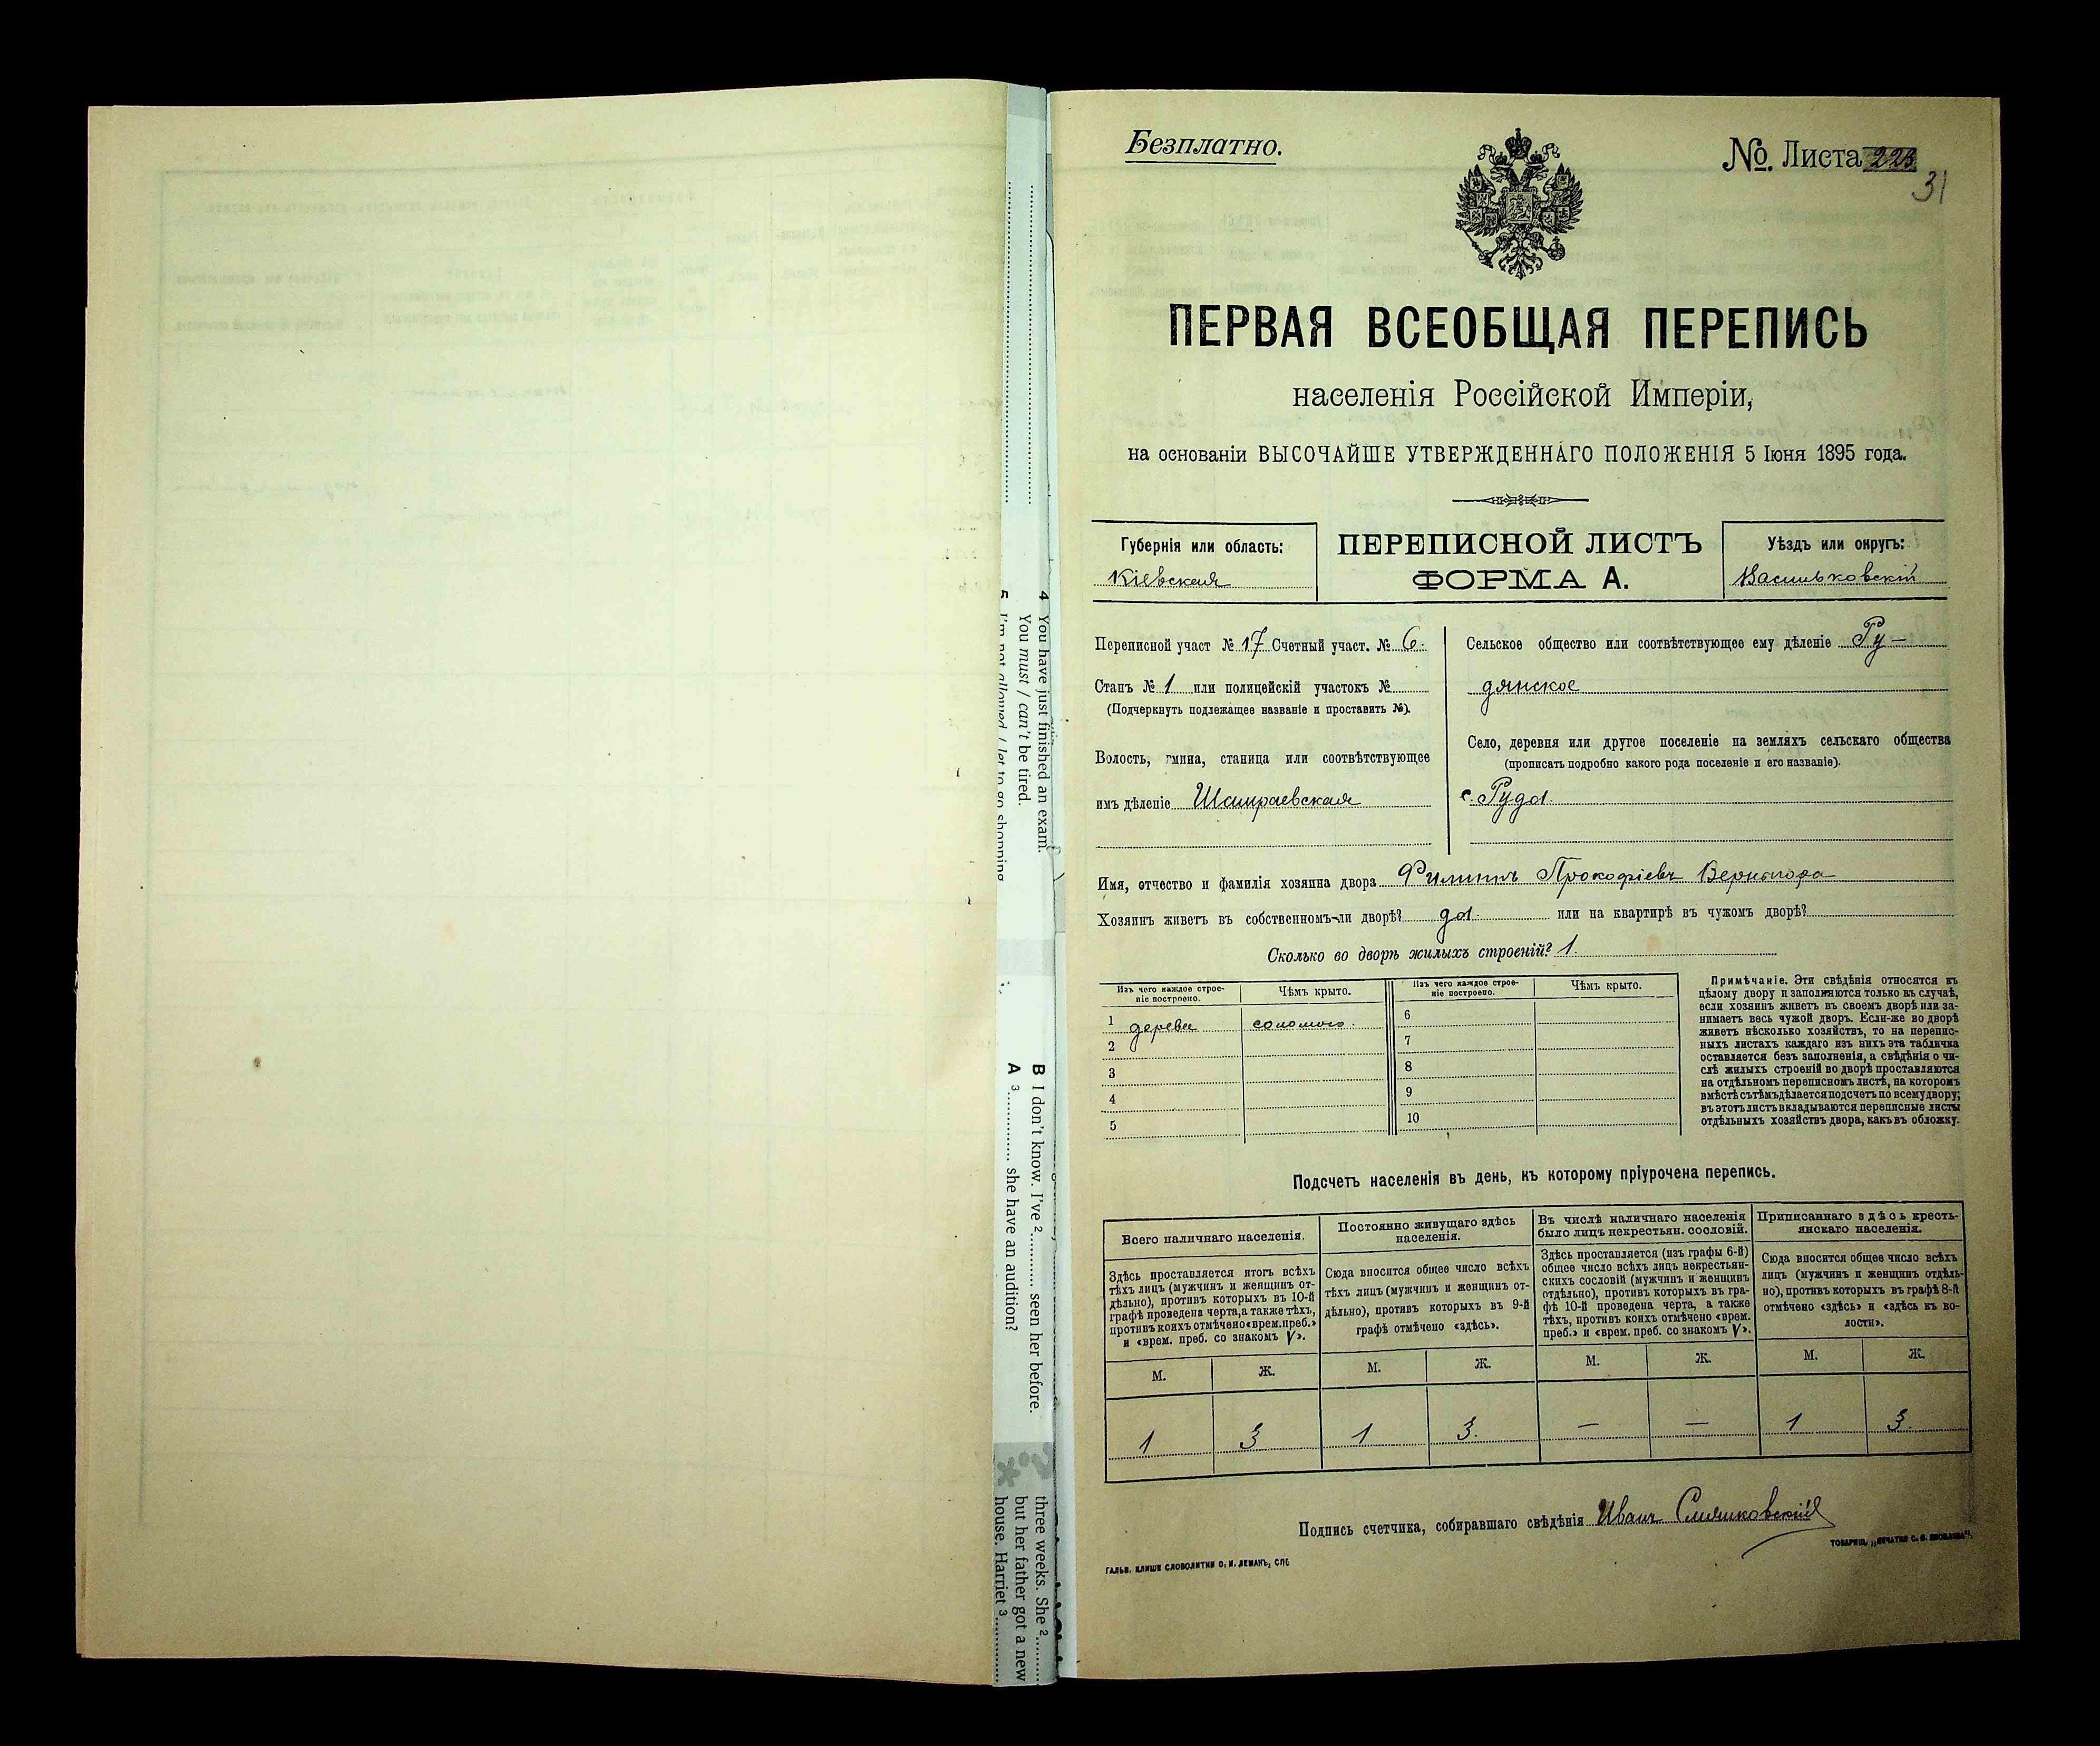 4 You have just finished an exam.
You must / can't be tired.
5 I'm not allowed / let to go shopping
B I don't know. I've ² ............ seen her before.
A ³ ............ she have an audition?
three weeks. She ² ............
but her father got a new
house. Harriet ³ ............
Безплатно.
№. Листа 223
31
ПЕРВАЯ ВСЕОБЩАЯ ПЕРЕПИСЬ
населенія Россійской Имперіи,
на основаніи ВЫСОЧАЙШЕ УТВЕРЖДЕННАГО ПОЛОЖЕНІЯ 5 Іюня 1895 года.
Губернія или область:
Кіевская
ПЕРЕПИСНОЙ ЛИСТЪ
ФОРМА А.
Уѣздъ или округъ:
Васильковскій
Переписной участ № 17 Счетный участ. № 6.
Станъ № 1 или полицейскій участокъ №
(Подчеркнуть подлежащее названіе и проставить №).
Волость, гмина, станица или соотвѣтствующее
имъ дѣленіе Шамраевская
Сельское общество или соотвѣтствующее ему дѣленіе Ру-
дянское
Село, деревня или другое поселеніе на земляхъ сельскаго общества
(прописать подробно какого рода поселеніе и его названіе).
с. Руда.
Имя, отчество и фамилія хозяина двора Филиппъ Прокофіевъ Вернигора
Хозяинъ живетъ въ собственномъ-ли дворѣ? да. или на квартирѣ въ чужомъ дворѣ?
Сколько во дворѣ жилыхъ строеній? 1.
Изъ чего каждое строе-
ніе построено.
Чѣмъ крыто.
Изъ чего каждое строе-
ніе построено.
Чѣмъ крыто.
1 дерева соломою.
2
3
4
5
6
7
8
9
10
Примѣчаніе. Эти свѣдѣнія относятся къ
цѣлому двору и заполняются только въ случаѣ,
если хозяинъ живетъ въ своемъ дворѣ или за-
нимаетъ весь чужой дворъ. Если-же во дворѣ
живетъ нѣсколько хозяйствъ, то на перепис-
ныхъ листахъ каждаго изъ нихъ эта табличка
оставляется безъ заполненія, а свѣдѣнія о чи-
слѣ жилыхъ строеній во дворѣ проставляются
на отдѣльномъ переписномъ листѣ, на которомъ
вмѣстѣ съ тѣмъ дѣлается подсчетъ по всему двору;
въ этотъ листъ вкладываются переписные листы
отдѣльныхъ хозяйствъ двора, какъ въ обложку.
Подсчетъ населенія въ день, къ которому пріурочена перепись.
Всего наличнаго населенія.
Здѣсь проставляется итогъ всѣхъ
тѣхъ лицъ (мужчинъ и женщинъ от-
дѣльно), противъ которыхъ въ 10-й
графѣ проведена черта, а также тѣхъ,
противъ коихъ отмѣчено «врем. преб.»
и «врем. преб. со знакомъ V».
Постоянно живущаго здѣсь
населенія.
Сюда вносится общее число всѣхъ
тѣхъ лицъ (мужчинъ и женщинъ от-
дѣльно), противъ которыхъ въ 9-й
графѣ отмѣчено «здѣсь».
Въ числѣ наличнаго населенія
было лицъ некрестьян. сословій.
Здѣсь проставляется (изъ графы 6-й)
общее число всѣхъ лицъ некрестьян-
скихъ сословій (мужчинъ и женщинъ
отдѣльно), противъ которыхъ въ гра-
фѣ 10-й проведена черта, а также
тѣхъ, противъ коихъ отмѣчено «врем.
преб.» и «врем. преб. со знакомъ V».
Приписаннаго здѣсь кресть-
янскаго населенія.
Сюда вносится общее число всѣхъ
лицъ (мужчинъ и женщинъ отдѣль-
но), противъ которыхъ въ графѣ 8-й
отмѣчено «здѣсь» и «здѣсь къ во-
лости».
М. Ж. М. Ж. М. Ж. М. Ж.
1 3 1 3. — — 1 3.
Подпись счетчика, собиравшаго свѣдѣнія Иванъ
ГАЛЬВ. КЛИШЕ СЛОВОЛИТНИ О. И. ЛЕМАНЪ, СПБ
ТОВАРИЩ. „ПЕЧАТНЯ С. П. ЯКОВЛЕВА“.